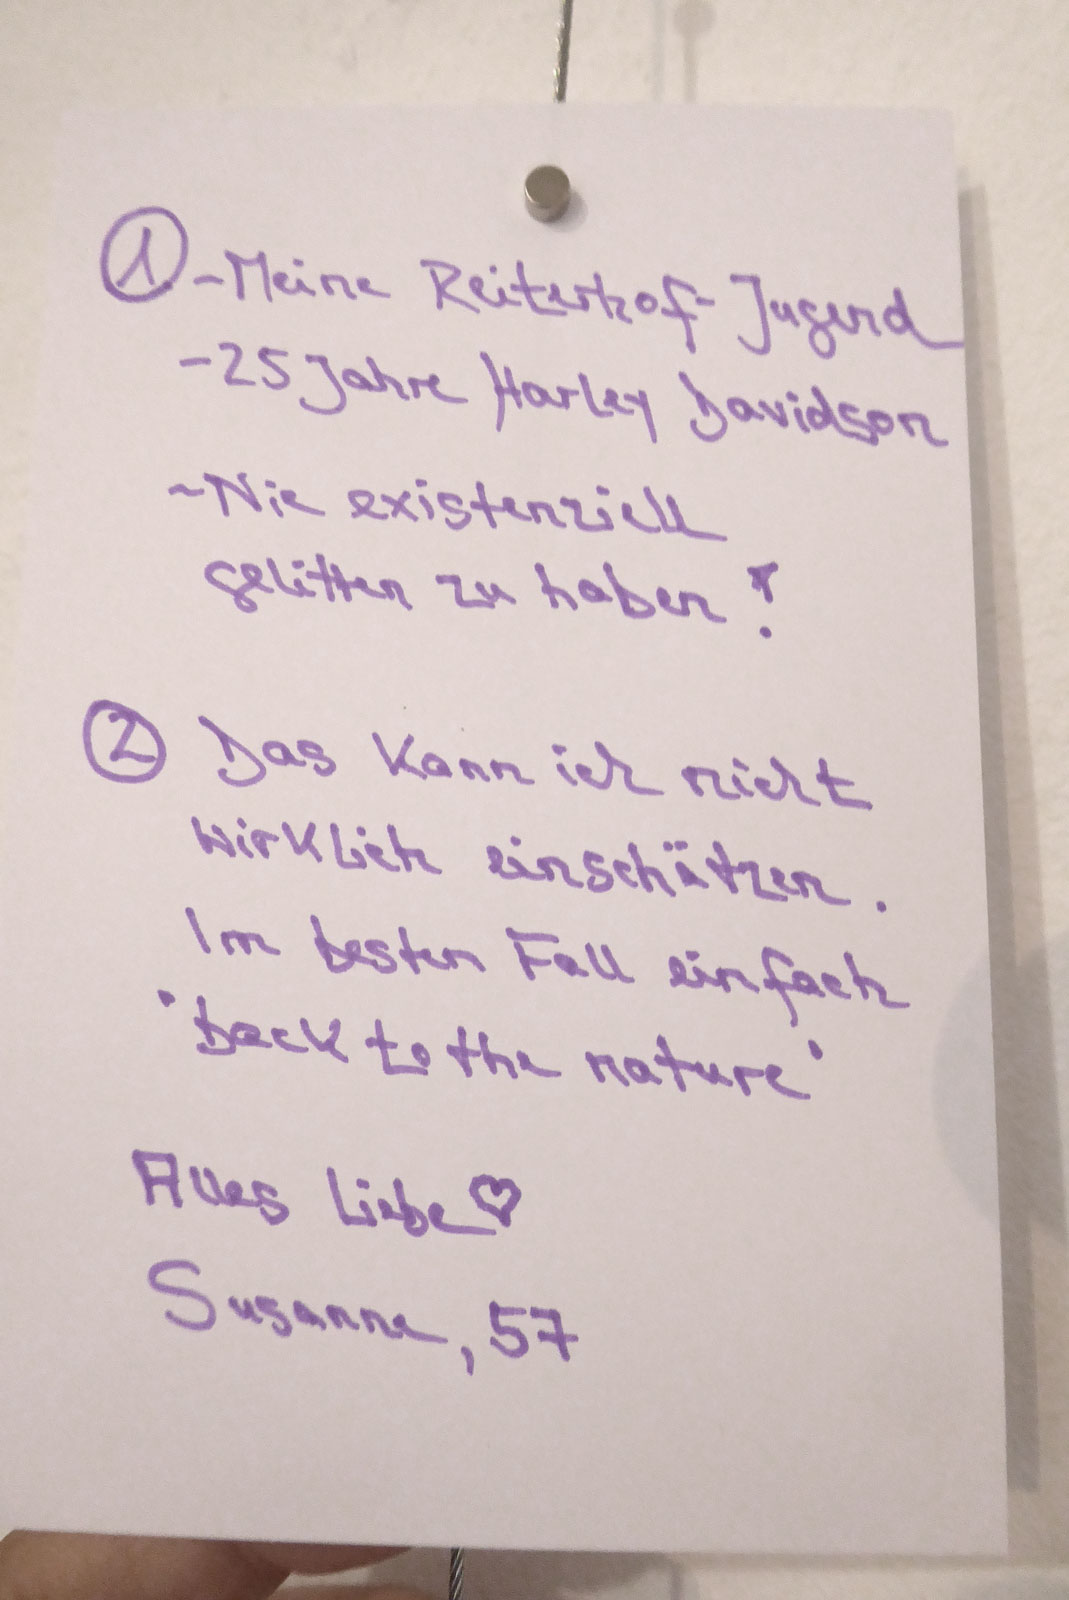 ① - Meine Reiterhof-Jugend
- 25 Jahre Harley Davidson
- Nie existenziell
gelitten zu haben!
② Das kann ich nicht
wirklich einschätzen.
Im besten Fall einfach
"back to the nature"
Alles Liebe ♡
Susanne, 57